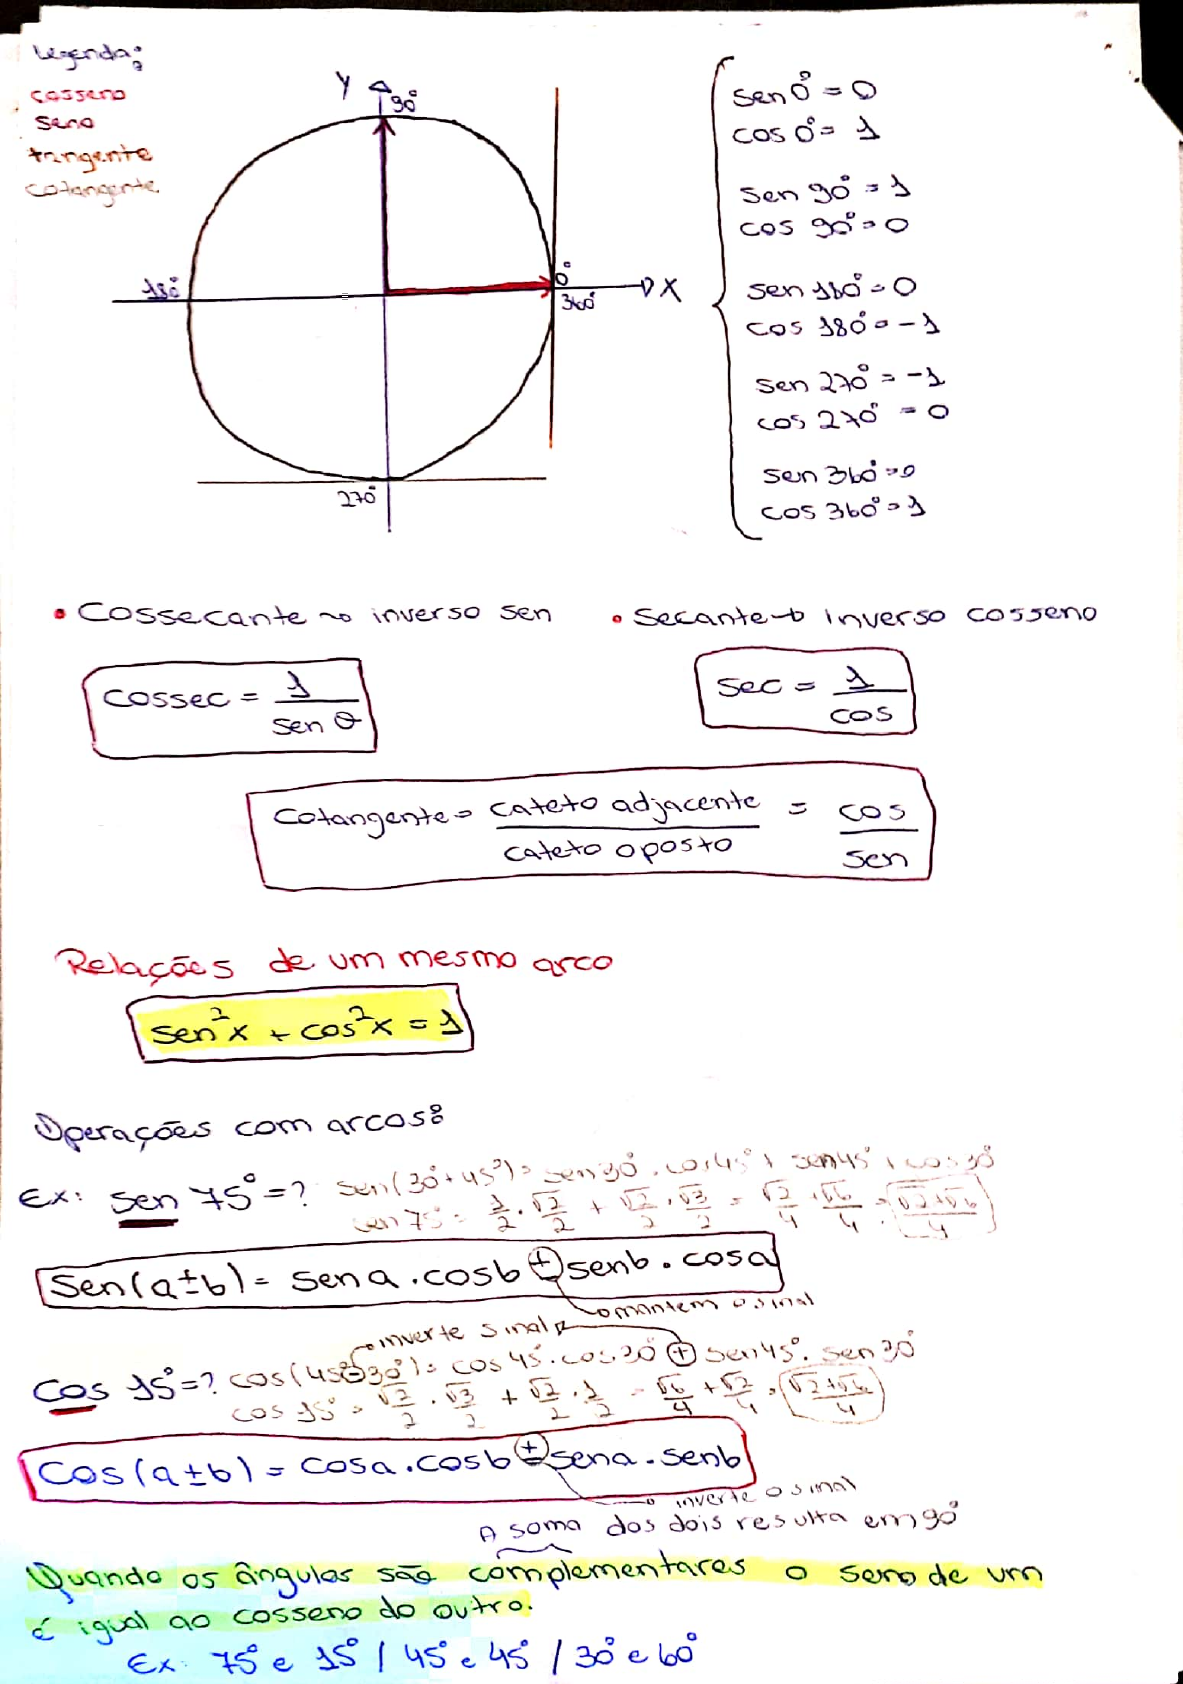 Legenda:
cosseno
seno
tangente
cotangente
Y
90°
180°
0°
360°
X
270°
sen 0° = 0
cos 0° = 1
sen 90° = 1
cos 90° = 0
sen 180° = 0
cos 180° = -1
sen 270° = -1
cos 270° = 0
sen 360° = 0
cos 360° = 1
• Cossecante → inverso sen
• Secante → inverso cosseno
cossec = 1/sen θ
sec = 1/cos
Cotangente = cateto adjacente/cateto oposto = cos/sen
Relações de um mesmo arco
sen²x + cos²x = 1
Operações com arcos:
Ex: sen 75° = ? sen(30°+45°) = sen 30° . cos 45° + sen 45° . cos 30°
sen 75° = 1/2 . √2/2 + √2/2 . √3/2 = √2/4 + √6/4 = √2+√6/4
Sen(a±b) = sen a . cos b ± sen b . cos a
→ mantem o sinal
inverte sinal
Cos 15° = ? cos(45°-30°) = cos 45° . cos 30° + sen 45° . sen 30°
cos 15° = √2/2 . √3/2 + √2/2 . 1/2 = √6/4 + √2/4 = √2+√6/4
Cos(a±b) = cos a . cos b ± sen a . sen b
→ inverte o sinal
A soma dos dois resulta em 90°
Quando os ângulos são complementares o seno de um
é igual ao cosseno do outro.
Ex: 75° e 15° / 45° e 45° / 30° e 60°